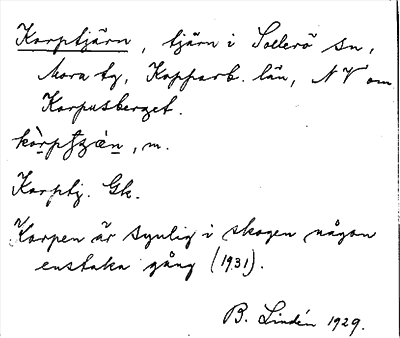 Korptjärn, tjärn i Sollerö sn,
Mora tg, Kopparb. län, NV om
Korpusberget.
kòrpt̠ʒæ̀n, m.
Korptj. Gk.
Korpen är synlig i skogen någon
enstaka gång (1931).
B. Lindén 1929.